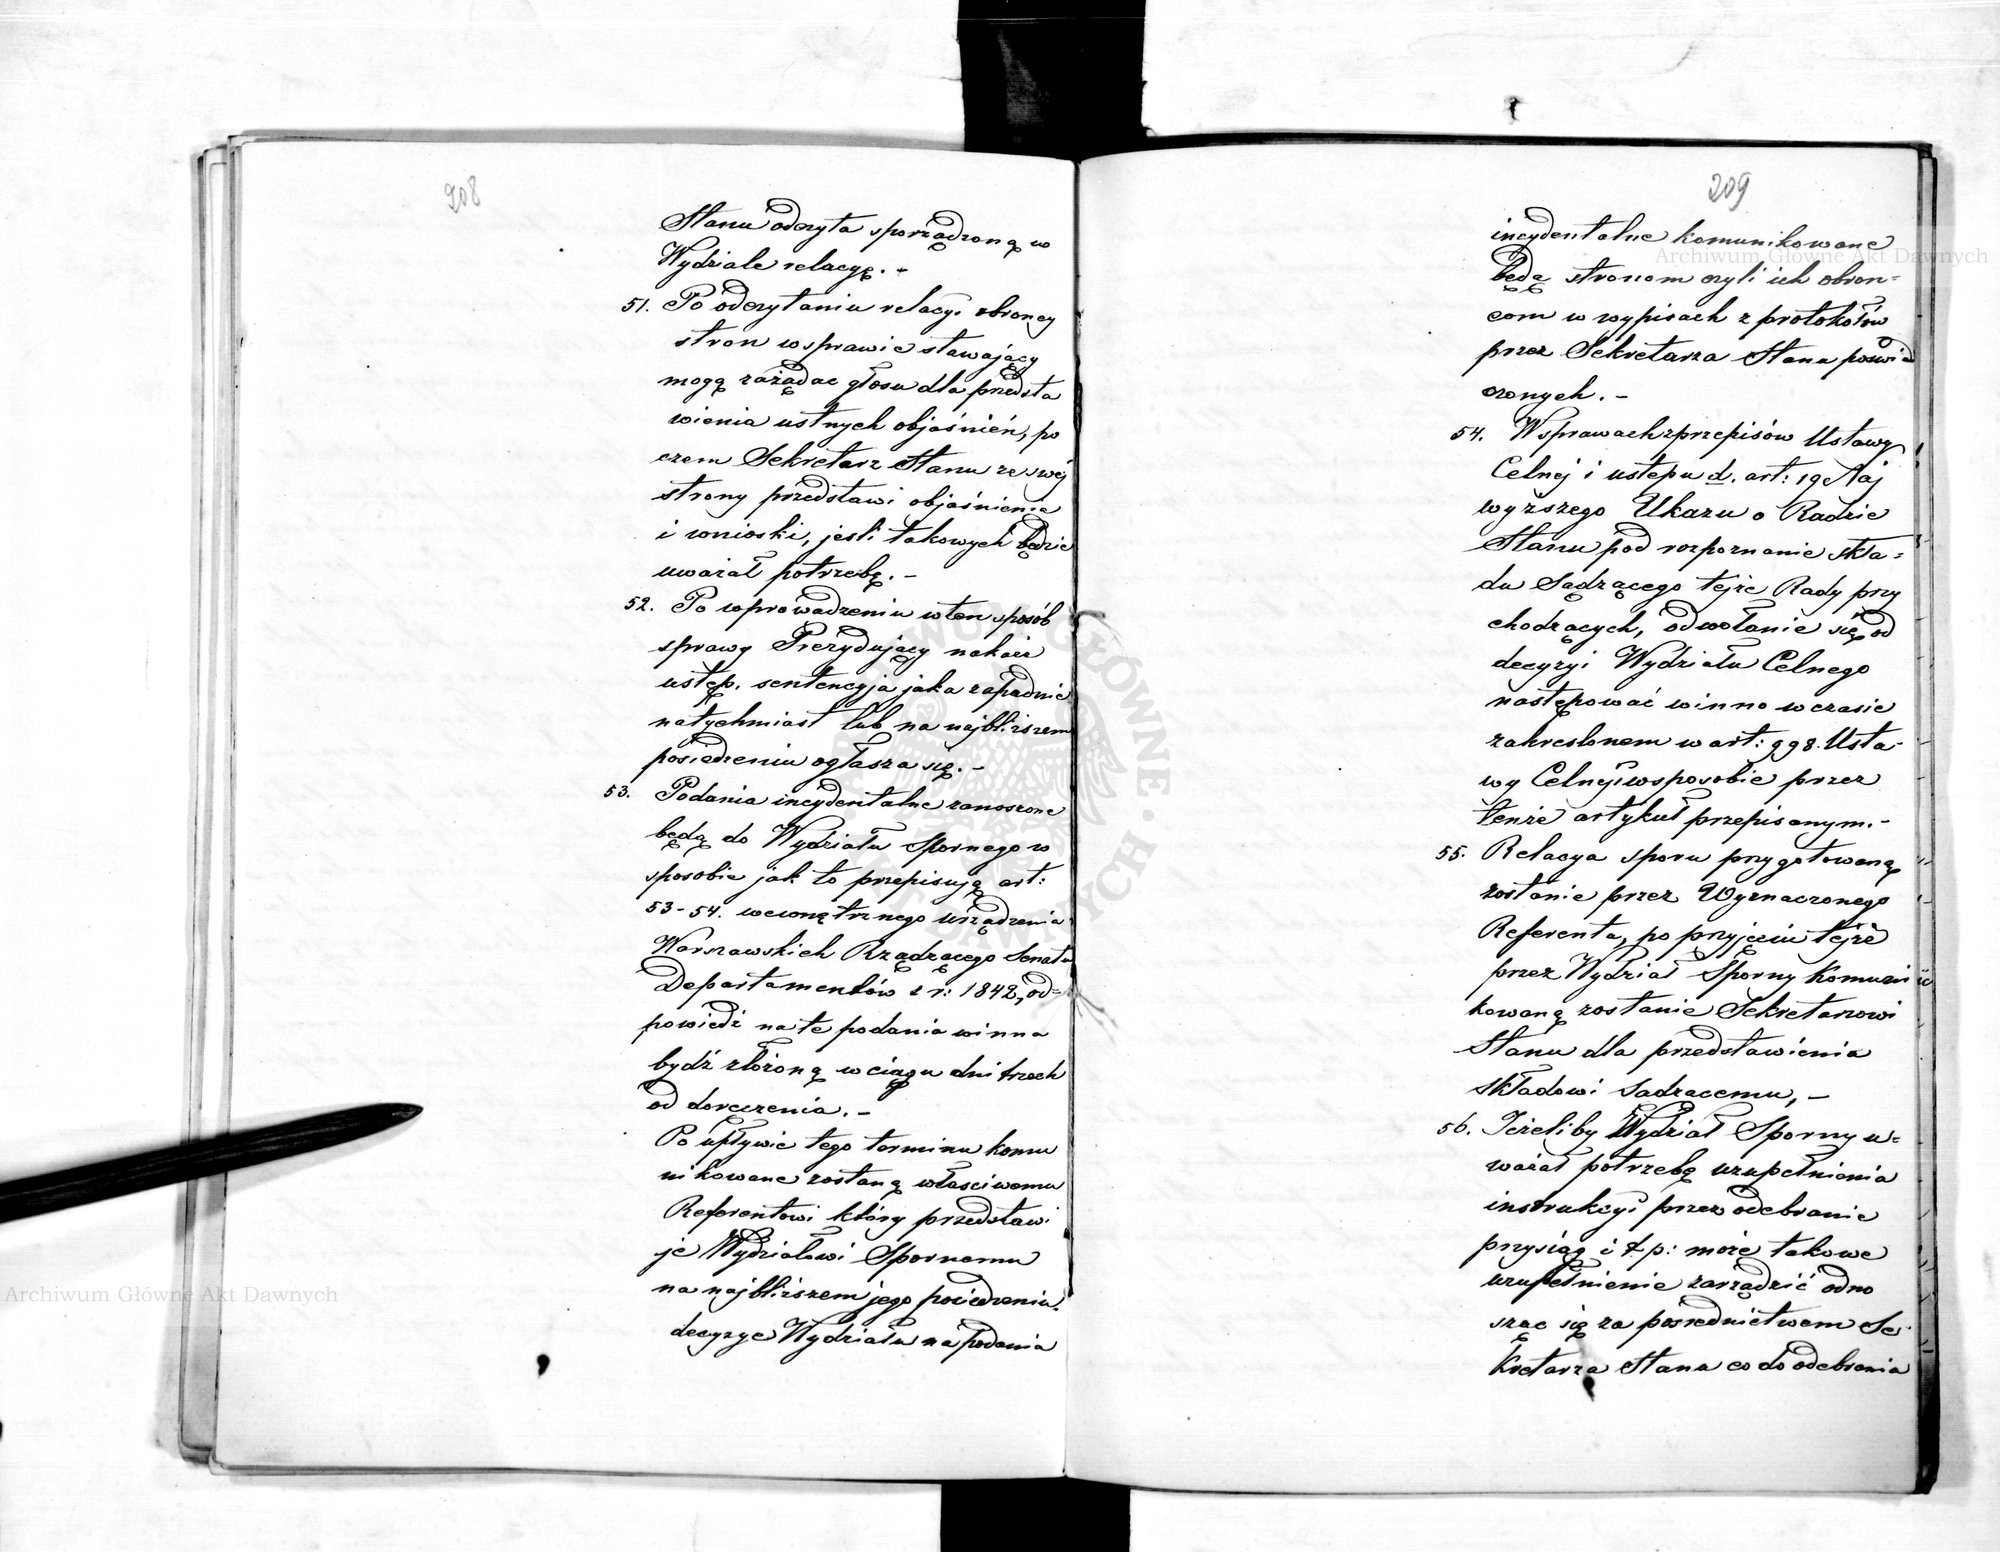 208
Stanu odczyta sporządzoną w
Wydziale relacyę. -
51. Po odczytaniu relacyi obroncy
stron w sprawie stawający
mogą zażądac głosu dla przedsta
wienia ustnych objaśnień, po
czem Sekretarz Stanu ze swéj
strony przedstawi objaśnienia
i wnioski, jesli takowych będzie
uważał potrzebę. -
52. Po wprowadzeniu w ten sposób
sprawy Prezydujący nakaże
ustęp. sentencyja jaka zapadnie
natychmiast lub na najbliższem
posiedzeniu ogłasza się. -
53. Podania incydentalne zanoszone
będą do Wydziału Spornego w
sposobie jak to przepisują art:
53-54. wewnętrznego urządzenia
Warszawskich Rządzącego Senatu
Departamentów z r: 1842, od=
powiedź na te podania winna
bydź złożoną w ciągu dni trzech
od doręczenia. -
Po upływie tego terminu komu
nikowane zostaną właściwemu
Referentowi który przedstawi
je Wydziałowi Spornemu
na najbliższem jego posiedzeniu.
decyzye Wydziału na podania
209
incydentalne komunikowane
będą stronom czyli ich obron=
com w wypisach z protokołów
przez Sekretarza Stanu poświad
czonych. -
54. W sprawach z przepisów Ustawy
Celnej i ustępu d. art: 19 Naj
wyższego Ukazu o Radzie
Stanu pod rozpoznanie skła=
du Sądzącego tejże Rady przy
chodzących, odwołanie się od
decyzyi Wydziału Celnego
następować winno w czasie
zakreslonem w art: 998. Usta-
wy Celnej i w sposobie przez
tenże artykuł przepisanym.-
55. Relacya sporu przygotowaną
zostanie przez Wyznaczonego
Referenta, po przyjęciu tejże
przez Wydział Sporny komuni
kowaną zostanie Sekretarzowi
Stanu dla przedstawienia
składowi Sądzacemu, -
56. Jeżeliby Wydział Sporny u=
ważał potrzebę uzupełnienia
instrukcyi przez odebranie
przysiąg i t p: może takowe
uzupełnienie zarządzić odno
sząc się za pośrednictwem Se-
kretarza Stanu co do odebrania
Archiwum Główne Akt Dawnych
Archiwum Główne Akt Dawnych